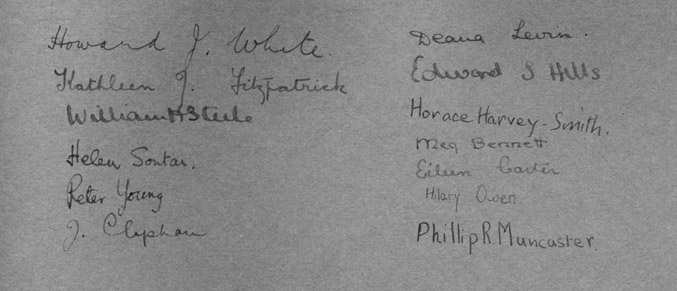 Howard J. White.
Kathleen J. Fitzpatrick
William H Steele
Helen Soutar.
Peter Young
J. Clapham
Deana Levin.
Edward S Hills
Horace Harvey-Smith.
Meg Bennett
Eileen Carter
Hilary Owen
Phillip R. Muncaster.